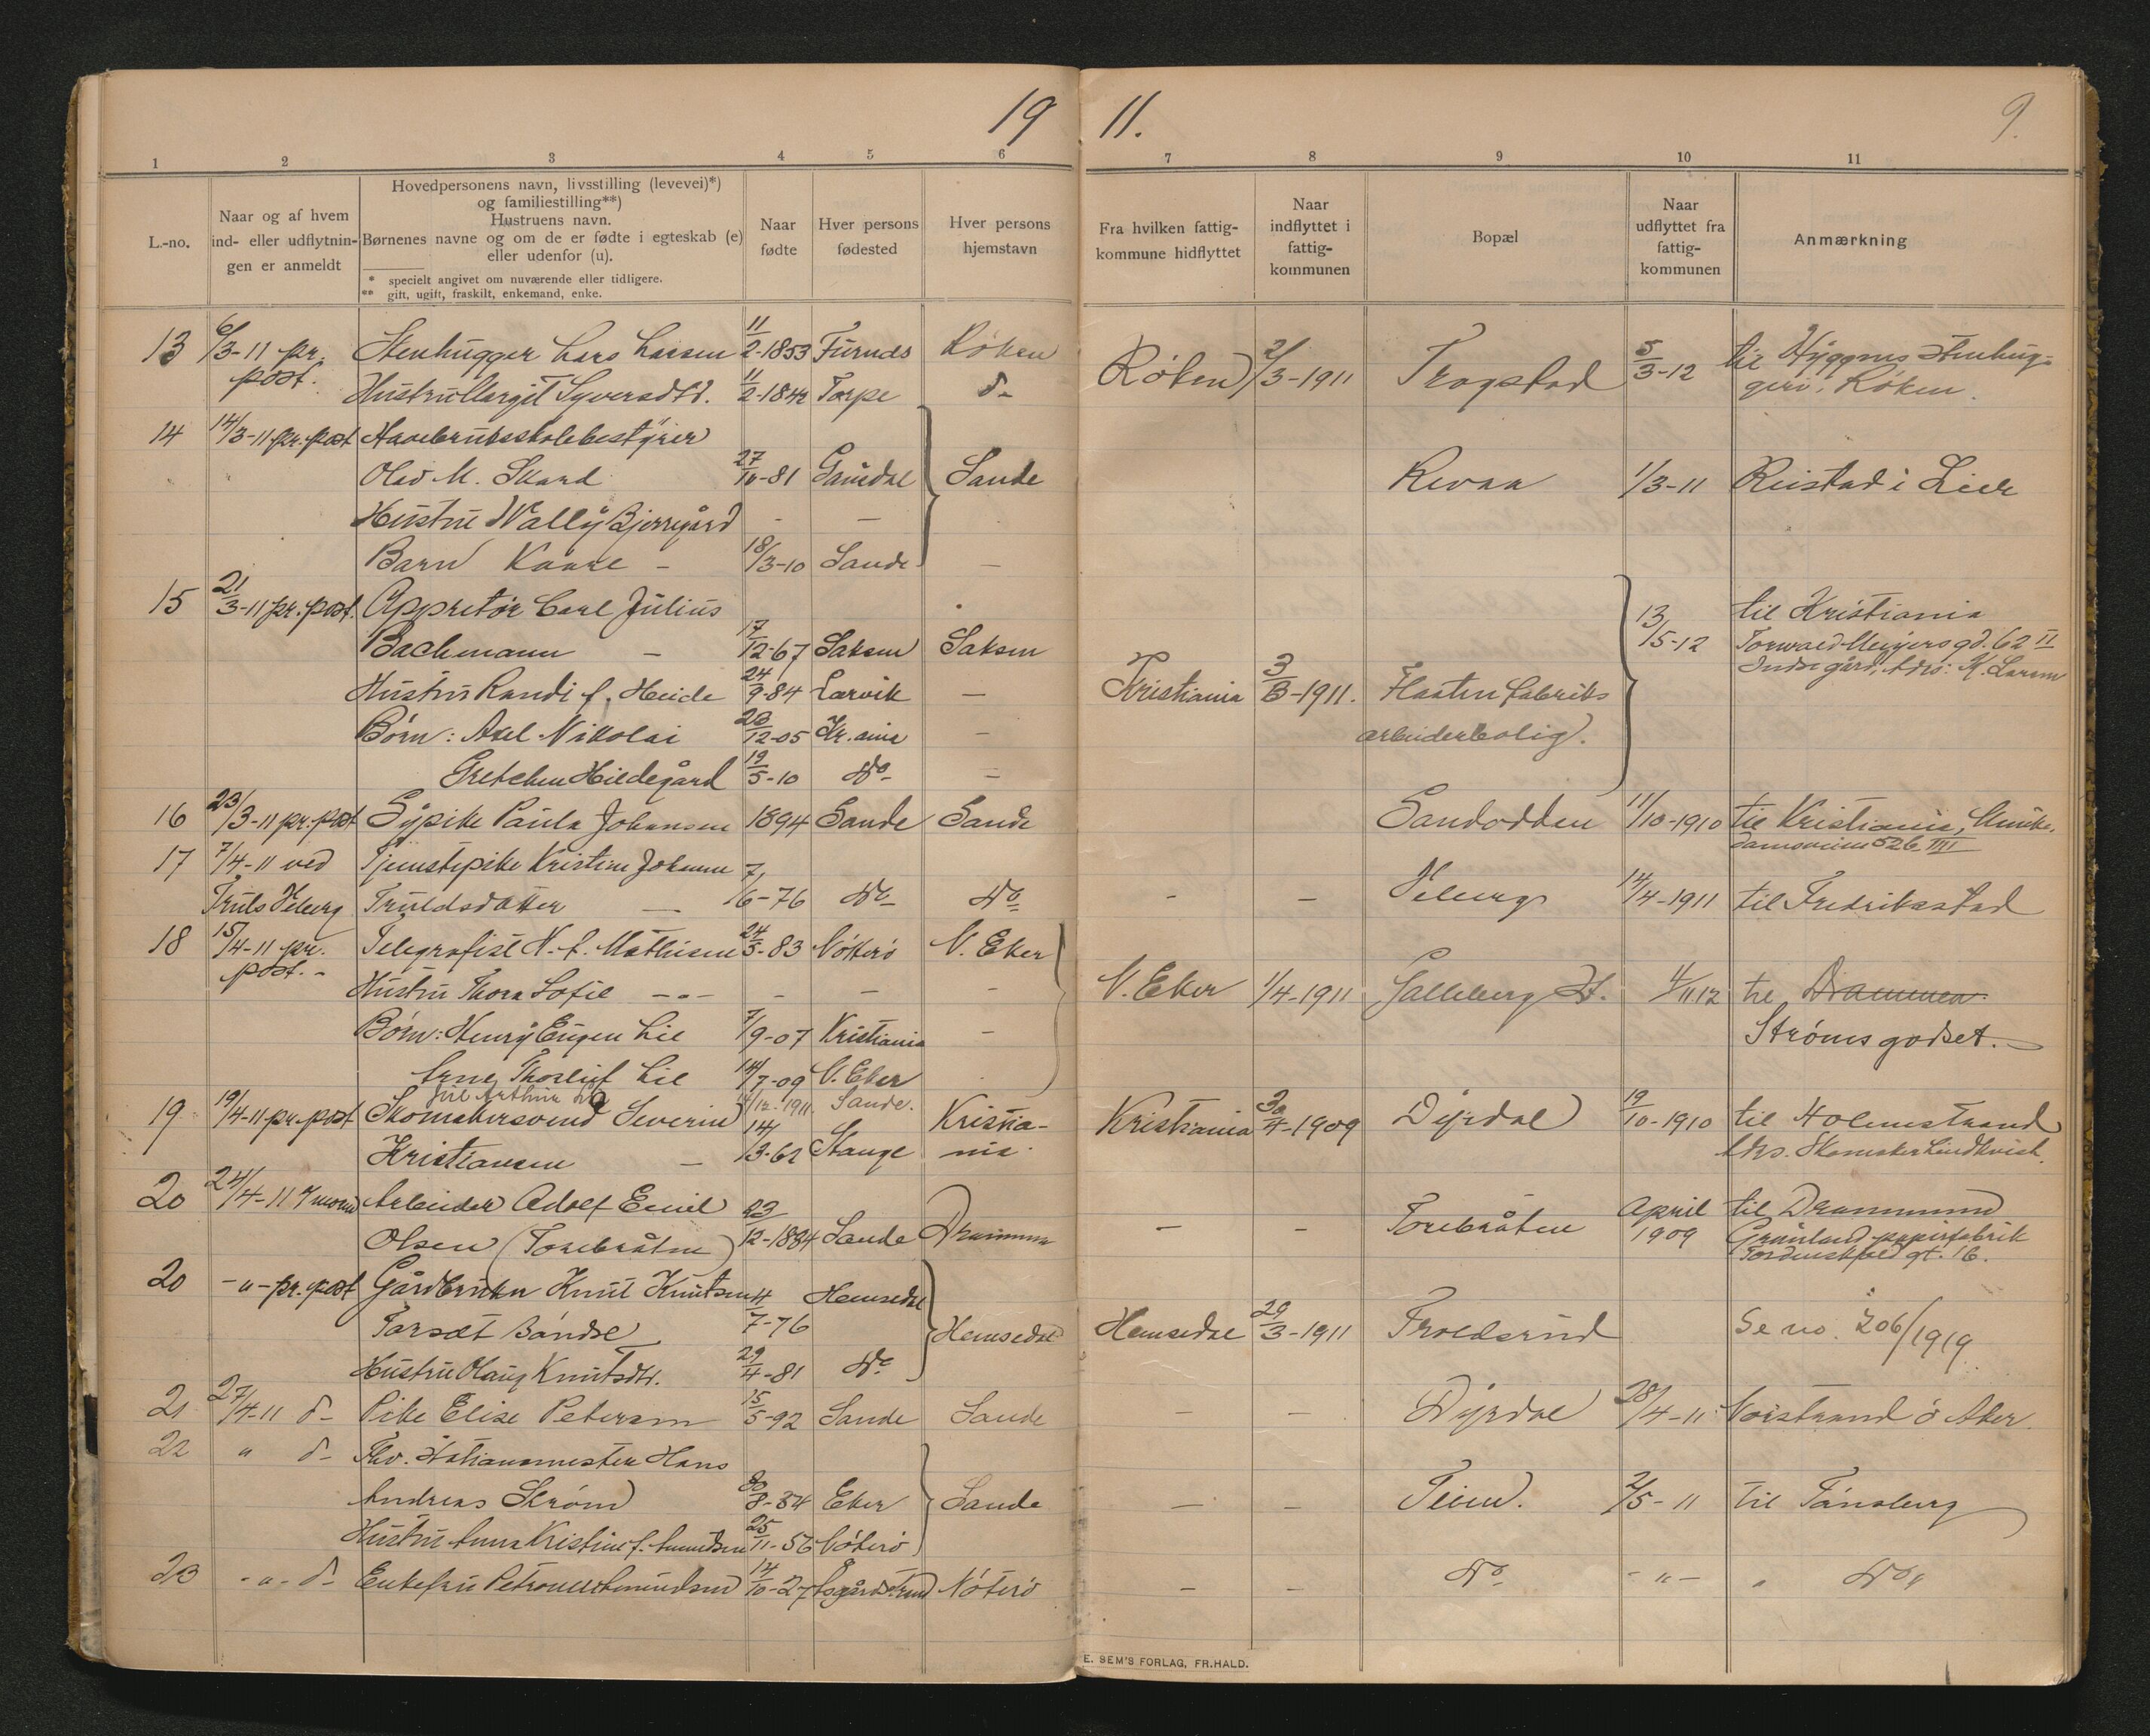 19 11.
9.
1 2 3 4 5 6 7 8 9 10 11
L.-no.
Naar og af hvem
ind- eller udflytnin-
gen er anmeldt
Hovedpersonens navn, livsstilling (levevei)*)
og familiestilling**)
Hustruens navn.
Børnenes navne og om de er fødte i egteskab (e)
eller udenfor (u).
* specielt angivet om nuværende eller tidligere.
** gift, ugift, fraskilt, enkemand, enke.
Naar
fødte
Hver persons
fødested
Hver persons
hjemstavn
Fra hvilken fattig-
kommune hidflyttet
Naar
indflyttet i
fattig-
kommunen
Bopæl
Naar
udflyttet fra
fattig-
kommunen
Anmærkning
13 6/3-11 pr. Stenhugger Lars Larsen 11/2-1853 Røken Røken 2/3-1911 Trogstad 5/3-12 til
post. Hustru Margit Syversdtr. 11/2-1842 Torpe d- Røken.
14 14/3-11 pr. post Havebruksskolebestyrer
Olav M. Skard 27/10-81 Sande Revaa 1/3-11 Reistad i Lier
Hustru Wally Bjerregård - -
Barn Kaare - 18/3-10 Sande -
15 21/3-11 pr. post. Appretør Carl Julius 13/5-12 til Kristiania
Bachmann - 17/12-67 Saksen Saksen Torvald Meyers gd. 62 II
Hustru Randi f. Heide 24/9-84 Larvik - Kristiania 3/3-1911. Fabriks K. Larsen
Børn: Axel Nikolai 23/12-05 Kr.ania - arbeiderbolig.
Gretchen Hildegård 19/5-10 do - -
16 23/3-11 pr. post Sypike Paula Johansen 1894 Sande Sande Sandodden 11/10-1910 til Kristiania,
17 7/4-11 ved Tjenstepike Kristine Johanne
Truls Veberg Truldsdatter - 7/6-76 do - do - - - 14/4-1911 til Fredrikstad
18 15/4-11 pr. Telegrafist N. L. Mathisen 24/5-83 Nøtterø N. Eker
post. - Hustru Thora Sofie - " - - - - N. Eker 1/4-1911 Galleberg St. 4/11 12 til Drammen
Børn: Henry Eugen Lie 7/9-07 Kristiania - Strømsgodset. -
Arne Thorleif Lie 14/7-09 N. Eker
Arthur 1911. Sande.
19 19/4-11 pr. post Skomakersvend Severin Kristia- Kristiania 30/4-1909 Dyrdal 19/10-1910 til Holmestrand
Kristiansen - 14/3-62 Stange nia. Adrs. Skomaker Lindkvist.
20 24/4-11 Arbeider Adolf Emil April til Drammen
Olsen (Torebråten) 23/12-1884 Sande Drammen - - Torebråten 1909 Grønland papirfabrik
Tordenskjold gt. 16.
20 - " - pr. post Gårdbruker Knut Knutsen 4/7-76 Hemsedal
Hemsedal Hemsedal 29/3-1911 Troldsrud Se no. 206/1919
Hustru Olaug Knutsdtr. 29/4-81 do
21 27/4-11 d- Pike Elise Petersen 15/5-92 Sande Sande - - Dyrdal 28/4-11 Aker.
22 " d- Fhv. Stationsmester Hans
Andreas Strøm 8-34 Eker Sande - - Teien. 2/5-11 til Tønsberg
Hustru Anna Kristine f. Amundsen 25/11-56 Nøterø
23 - " - d- Enkefru Amundsen 14/10-27 Åsgårdstrand Nøterø - - do - " - " do "
E. SEM'S FORLAG, FR.HALD.